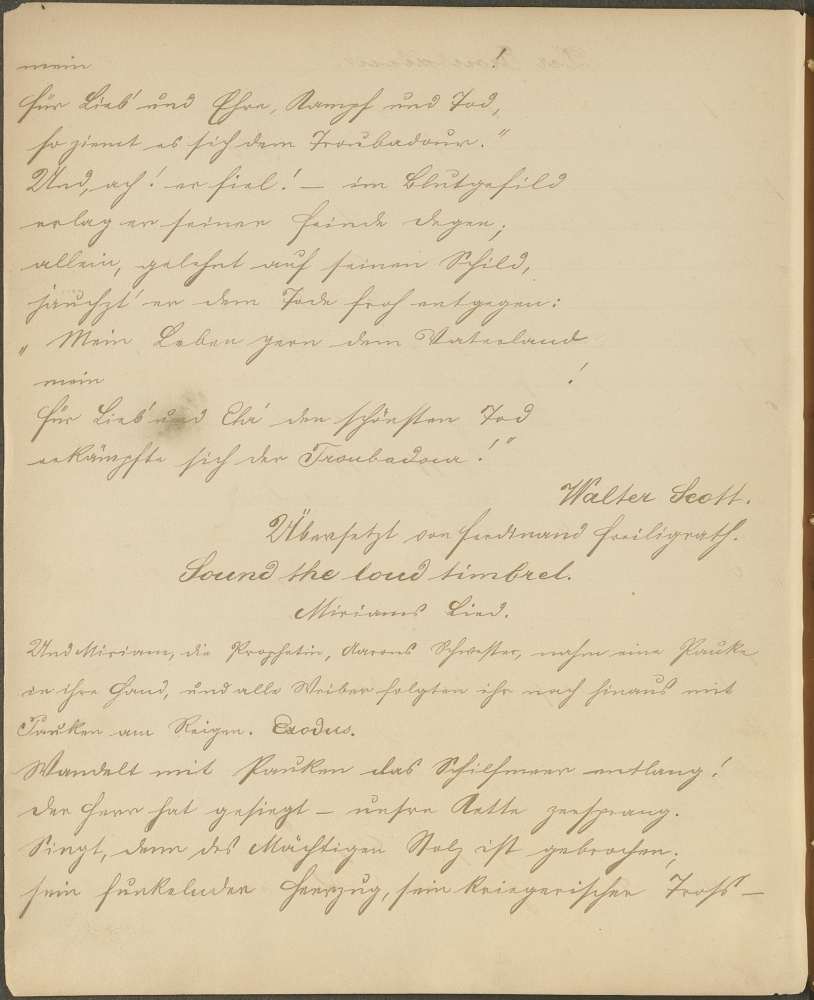 mein !
für Lieb' und Ehre, Kampf und Tod,
so ziemt es sich dem Troubadour."
Und, ach! er fiel! – im Blutgefild
erlag er seiner Feinde Degen;
allein, gelehnt auf seinen Schild,
jauchzt' er dem Tode froh entgegen:
„Mein Leben gern dem Vaterland
mein !
für Lieb' und Ehr' den schönsten Tod
erkämpfte sich der Troubadour!"
Walter Scott.
Übersetzt von Ferdinand Freiligrath.
Sound the loud timbrel.
Miriams Lied.
Und Miriam, die Prophetin, Aarons Schwester, nahm eine Pauke
in ihre Hand, und alle Weiber folgten ihr nach hinaus mit
Pauken am Reigen. Exodus.
Wandelt mit Pauken das Schilfmeer entlang!
Der Herr hat gesiegt – unsre Kette zersprang.
Singt, denn des Mächtigen Stolz ist gebrochen;
sein funkelnder Heerzug, sein kriegerischer Tross –